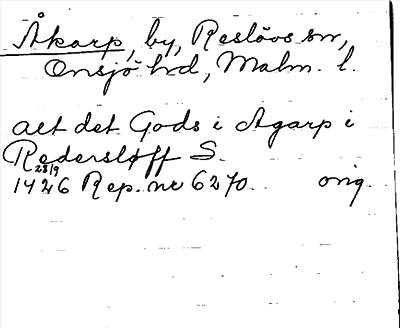 Åkarp, by, Reslövs sn,
Onsjö hd, Malm. l.
alt det Gods i Agarp i
Redersløff S.
28/9
1426 Rep. nr 6270. orig.